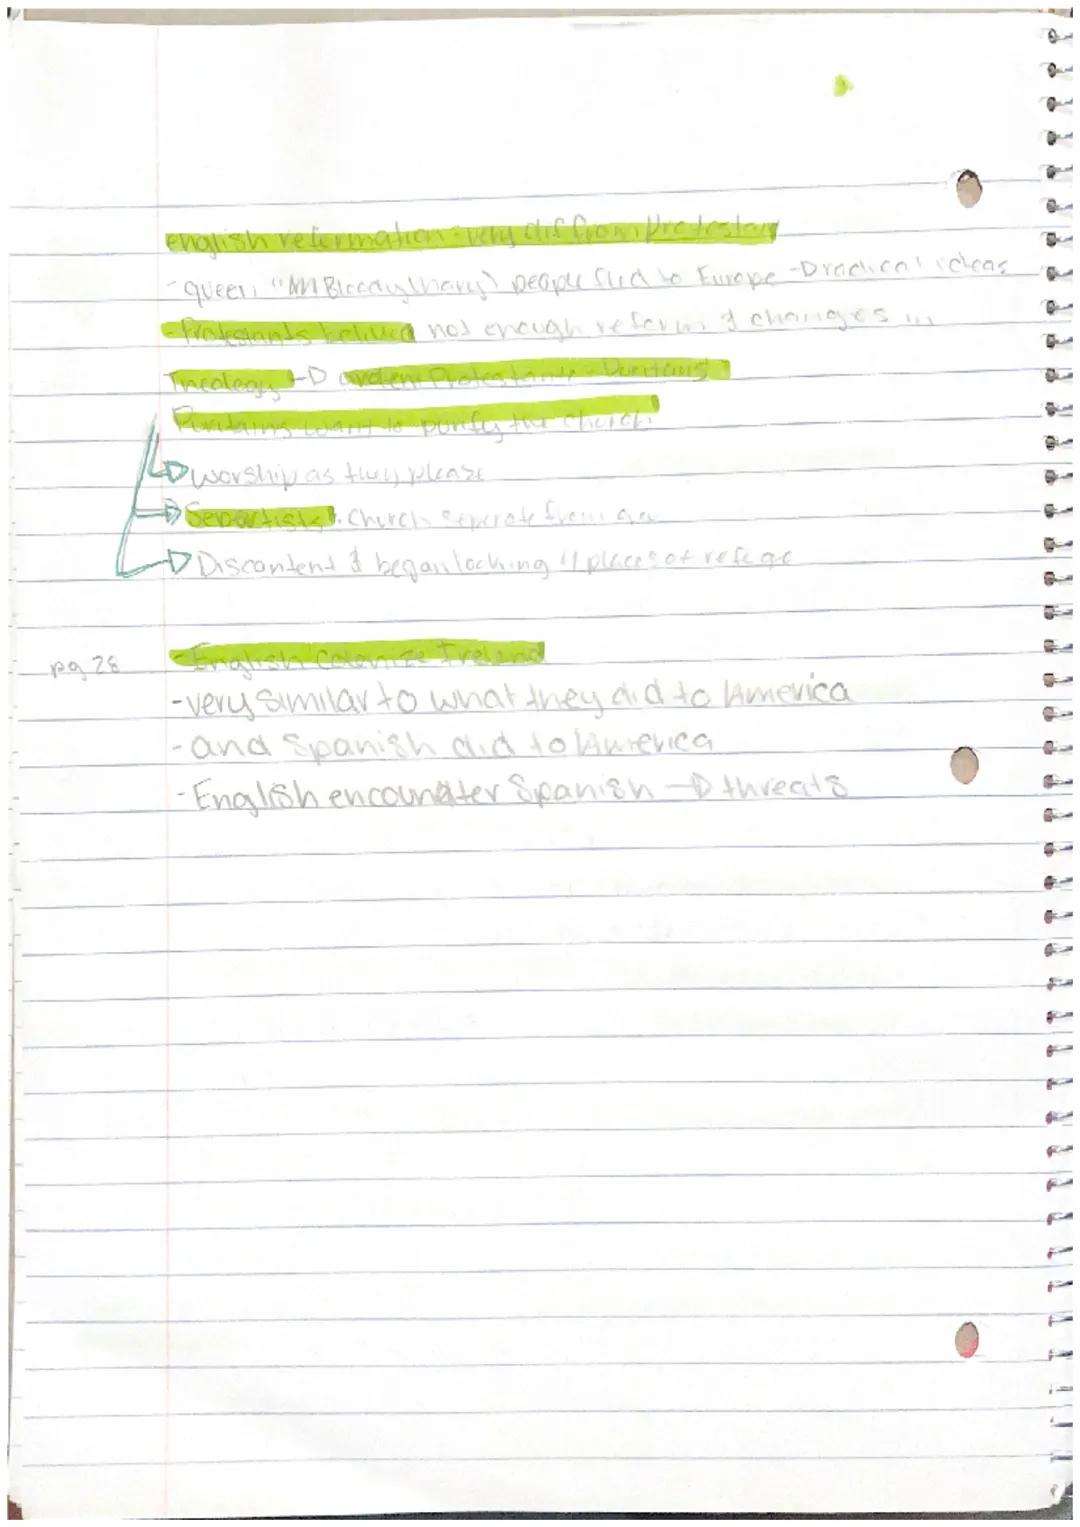 english reformation - very dif from Protestan
- queen "Bloody Mary" people fled to Europe → radical ideas
- Protestants belived not enough reform & changes in
Theology → ardent Protestants - Puritans
Puritans want to purify the church
→ worship as they please
→ Separtists: Church seperate from
→ Discontent & began looking 4 places of refuge
pg 28 - English colonize Ireland
- very similar to what they did to America
- and Spanish did to America
- English encounter Spanish → threats